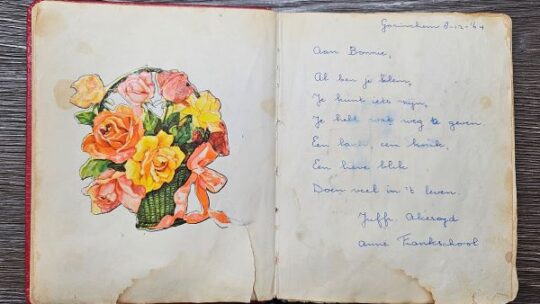 Gorinchem 8-12-'64
Aan Bonnie,
Al ben je klein,
Je kunt iets zijn,
Je hebt wat weg te geven.
Een lach, een honk,
Een lieve blik
Doen veel in 't leven.
Juffr. Akeroyd
Anne Frankschool